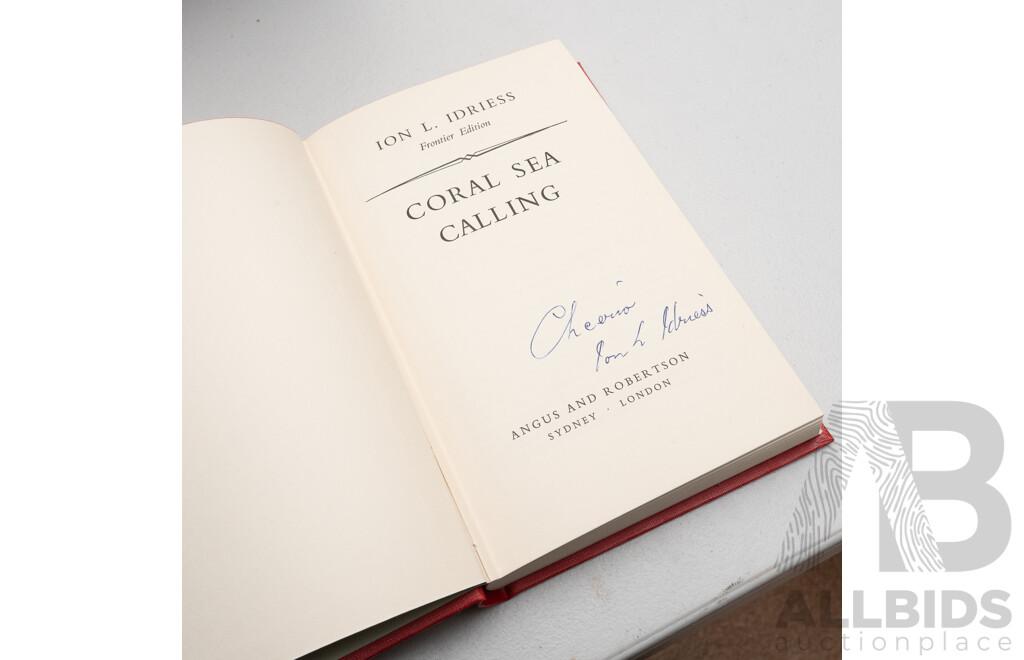 ION L. IDRIESS
Frontier Edition
CORAL SEA
CALLING
Cheerio
Ion L Idriess
ANGUS AND ROBERTSON
SYDNEY · LONDON
AB
ALLBIDS
auctionplace